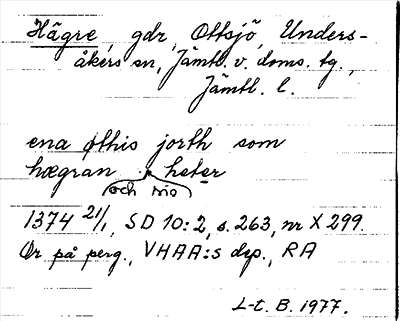 Hägre, gdr, Ottsjö, Unders-
åkers sn, Jämtl. v. doms. tg.,
Jämtl. l.
ena øthis jorth som
hægran heter
och nio
1374 21/1, SD 10:2, s. 263, nr X 299.
Or på perg., VHAA:s dep., RA
L-t. B. 1977.